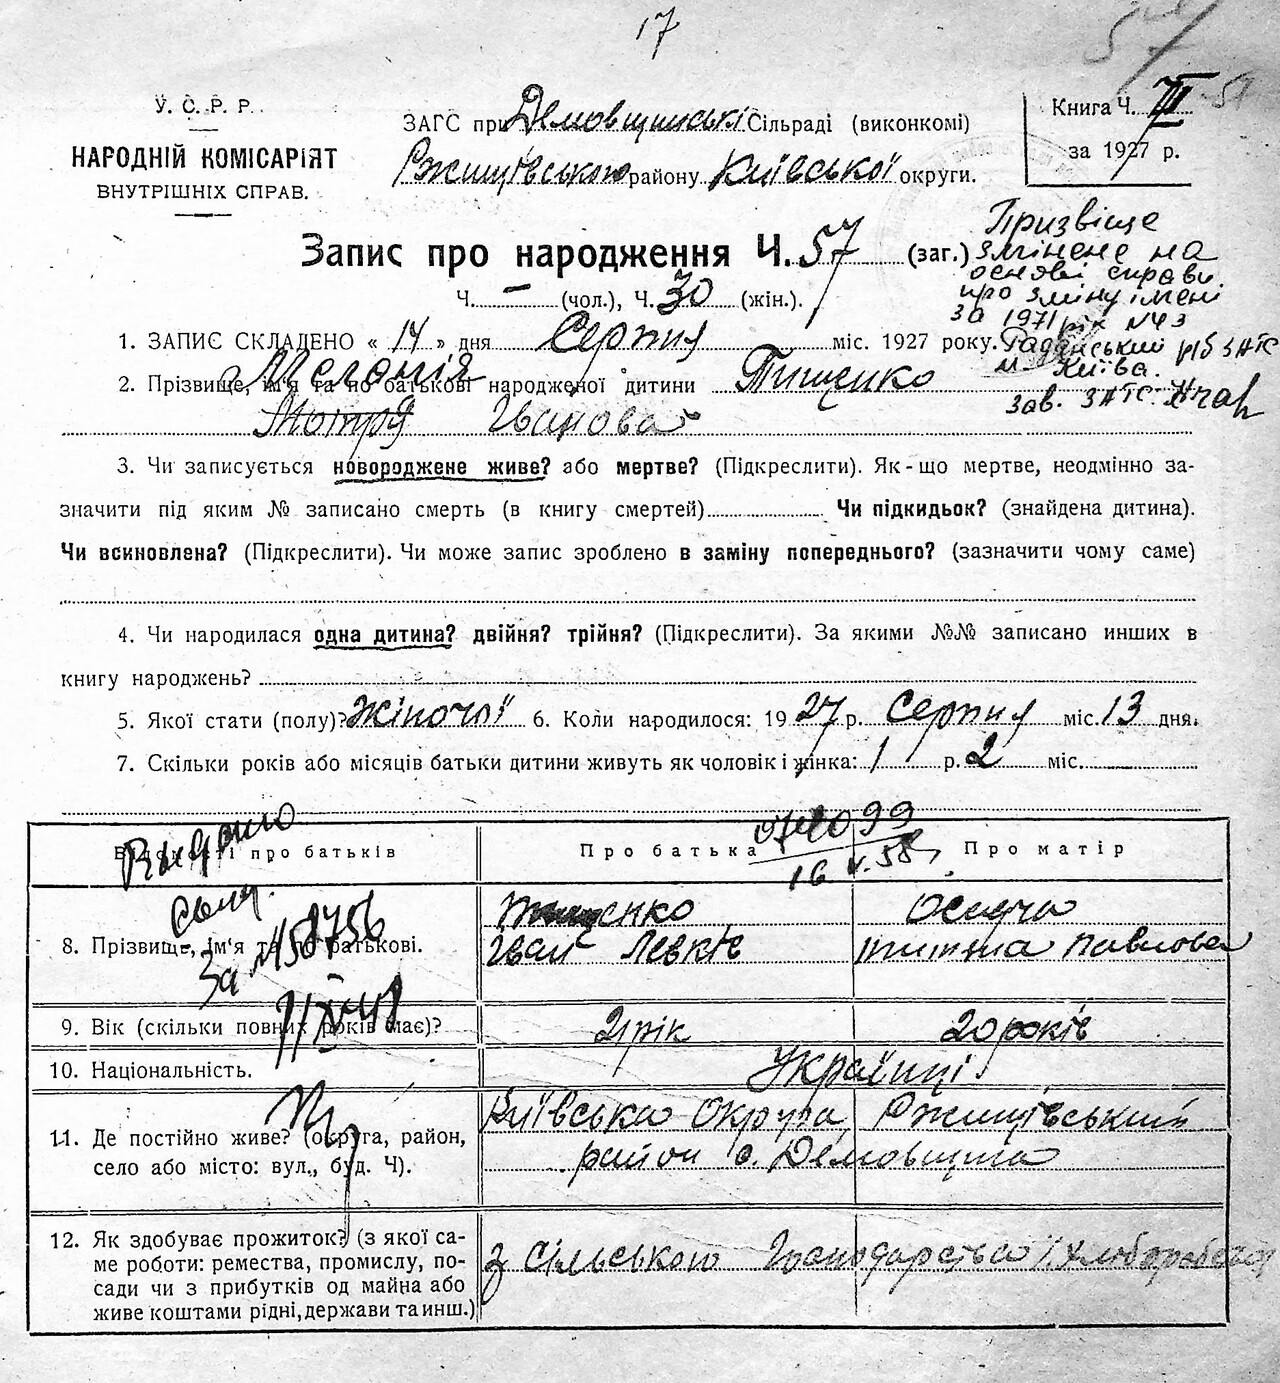 17
57
У. С. Р. Р.
НАРОДНІЙ КОМІСАРІЯТ
ВНУТРІШНІХ СПРАВ.
ЗАГС при Демовщинські Сільраді (виконкомі)
Ржищівського району Київської округи.
Книга Ч. III
за 1927 р.
Запис про народження Ч. 57 (заг.)
Ч. – (чол.), Ч. 30 (жін.).
Призвіще
змінене на
основі справи
про зміну імені
за 1971 рік №43
Радянський р/в ЗАГС
м. Київа.
Зав. ЗАГС.
1. ЗАПИС СКЛАДЕНО « 14 » дня Серпня міс. 1927 року.
Меланія
2. Прізвище, ім'я та по батькові народженої дитини Тищенко
Мотря Іванова
3. Чи записується новороджене живе? або мертве? (Підкреслити). Як-що мертве, неодмінно за-
значити під яким № записано смерть (в книгу смертей) Чи підкидьок? (знайдена дитина).
Чи всиновлена? (Підкреслити). Чи може запис зроблено в заміну попереднього? (зазначити чому саме)
4. Чи народилася одна дитина? двійня? трійня? (Підкреслити). За якими №№ записано инших в
книгу народжень?
5. Якої стати (полу)? Жіночої 6. Коли народилося: 1927 р. Серпня міс. 13 дня.
7. Скільки років або місяців батьки дитини живуть як чоловік і жінка: 1 р. 2 міс.
Відомості про батьків Про батька Про матір
16 V. 58
8. Прізвище, ім'я та по батькові.
Тищенко
Іван Левків
Титяна Павлова
За №458756
9. Вік (скільки повних років має)? 21 рік 20 років
10. Національність. Українці
11. Де постійно живе? (округа, район,
село або місто: вул., буд. Ч).
Київська Округа, Ржищівський
район с. Демовщина
12. Як здобуває прожиток? (з якої са-
ме роботи: ремества, промислу, по-
сади чи з прибутків од майна або
живе коштами рідні, держави та инш.)
з Сільського Господарства і хлібаробства